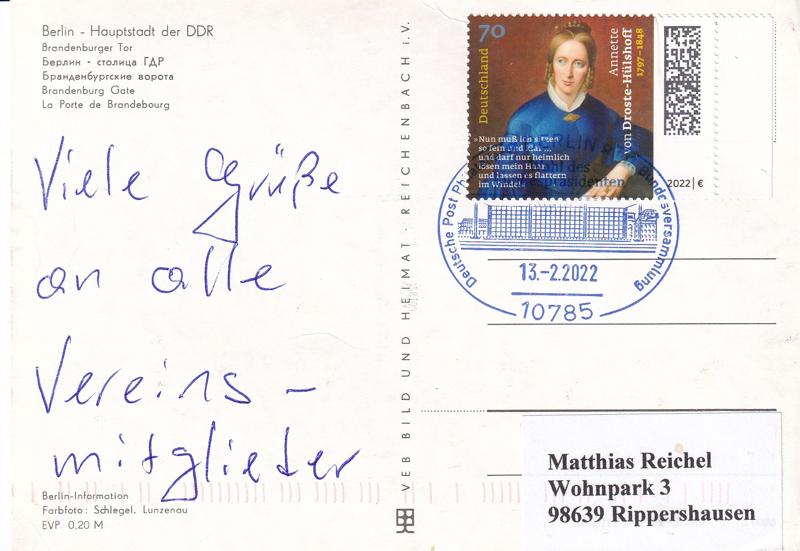 Berlin - Hauptstadt der DDR
Brandenburger Tor
Берлин - столица ГДР
Бранденбургские ворота
Brandenburg Gate
La Porte de Brandebourg
Viele Grüße
an alle
Vereins -
mitglieder
Berlin-Information
Farbfoto: Schlegel, Lunzenau
EVP 0,20 M
VEB BILD UND HEIMAT · REICHENBACH i.V.
70
Deutschland
Annette
von Droste-Hülshoff
1797-1848
»Nun muß ich sitzen
so fein und klar ...
und darf nur heimlich
lösen mein Haar
und lassen es flattern
im Winde!«
2022 | €
BERLIN
des
präsidenten
Deutsche Post
Bundesversammlung
13.-2.2022
10785
Matthias Reichel
Wohnpark 3
98639 Rippershausen